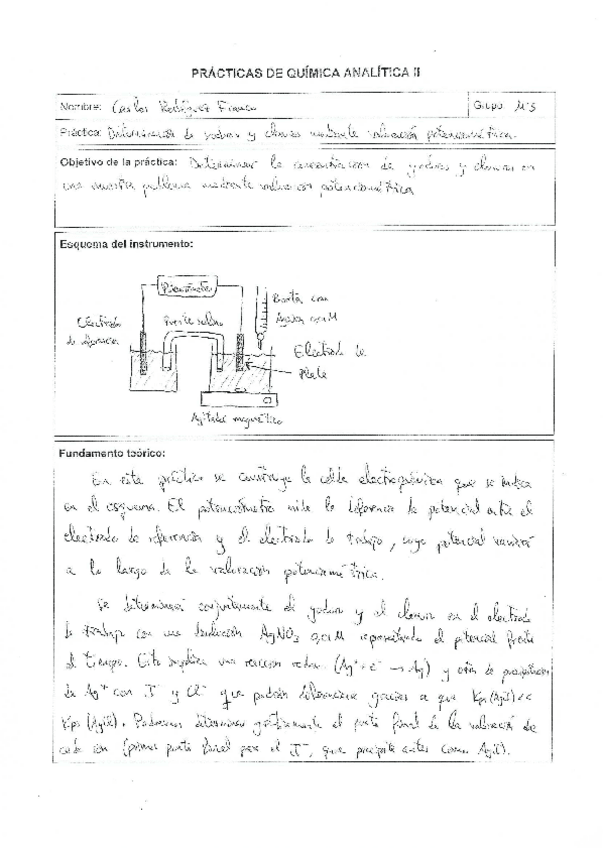 PRÁCTICAS DE QUÍMICA ANALÍTICA II
Nombre: Carlos Rodríguez Franco
Grupo: M-3
Práctica: Determinación de yoduro y cloruro mediante valoración potenciométrica.
Objetivo de la práctica: Determinar la concentración de yoduro y cloruro en
una muestra problema mediante valoración potenciométrica
Esquema del instrumento:
Potenciómetro
Bureta con
AgNO3 0,01M
Electrodo
de referencia
Puente salino
Electrodo de
Plata
Agitador magnético
Fundamento teórico:
En esta práctica se construye la celda electroquímica que se indica
en el esquema. El potenciómetro mide la diferencia de potencial entre el
electrodo de referencia y el electrodo de trabajo, cuyo potencial variará
a lo largo de la valoración potenciométrica.
Se determinará conjuntamente el yoduro y el cloruro en el electrodo
de trabajo con una disolución AgNO3 0,01M representando el potencial frente
al tiempo. Esto implica una reacción redox (Ag+ + e- → Ag) y otra de precipitación
de Ag+ con I- y Cl- que podrán diferenciarse gracias a que Kps(AgI) <<
Kps(AgCl). Podremos determinar gráficamente el punto final de la valoración de
cada ión (primer punto final para el I-, que precipita antes como AgI).